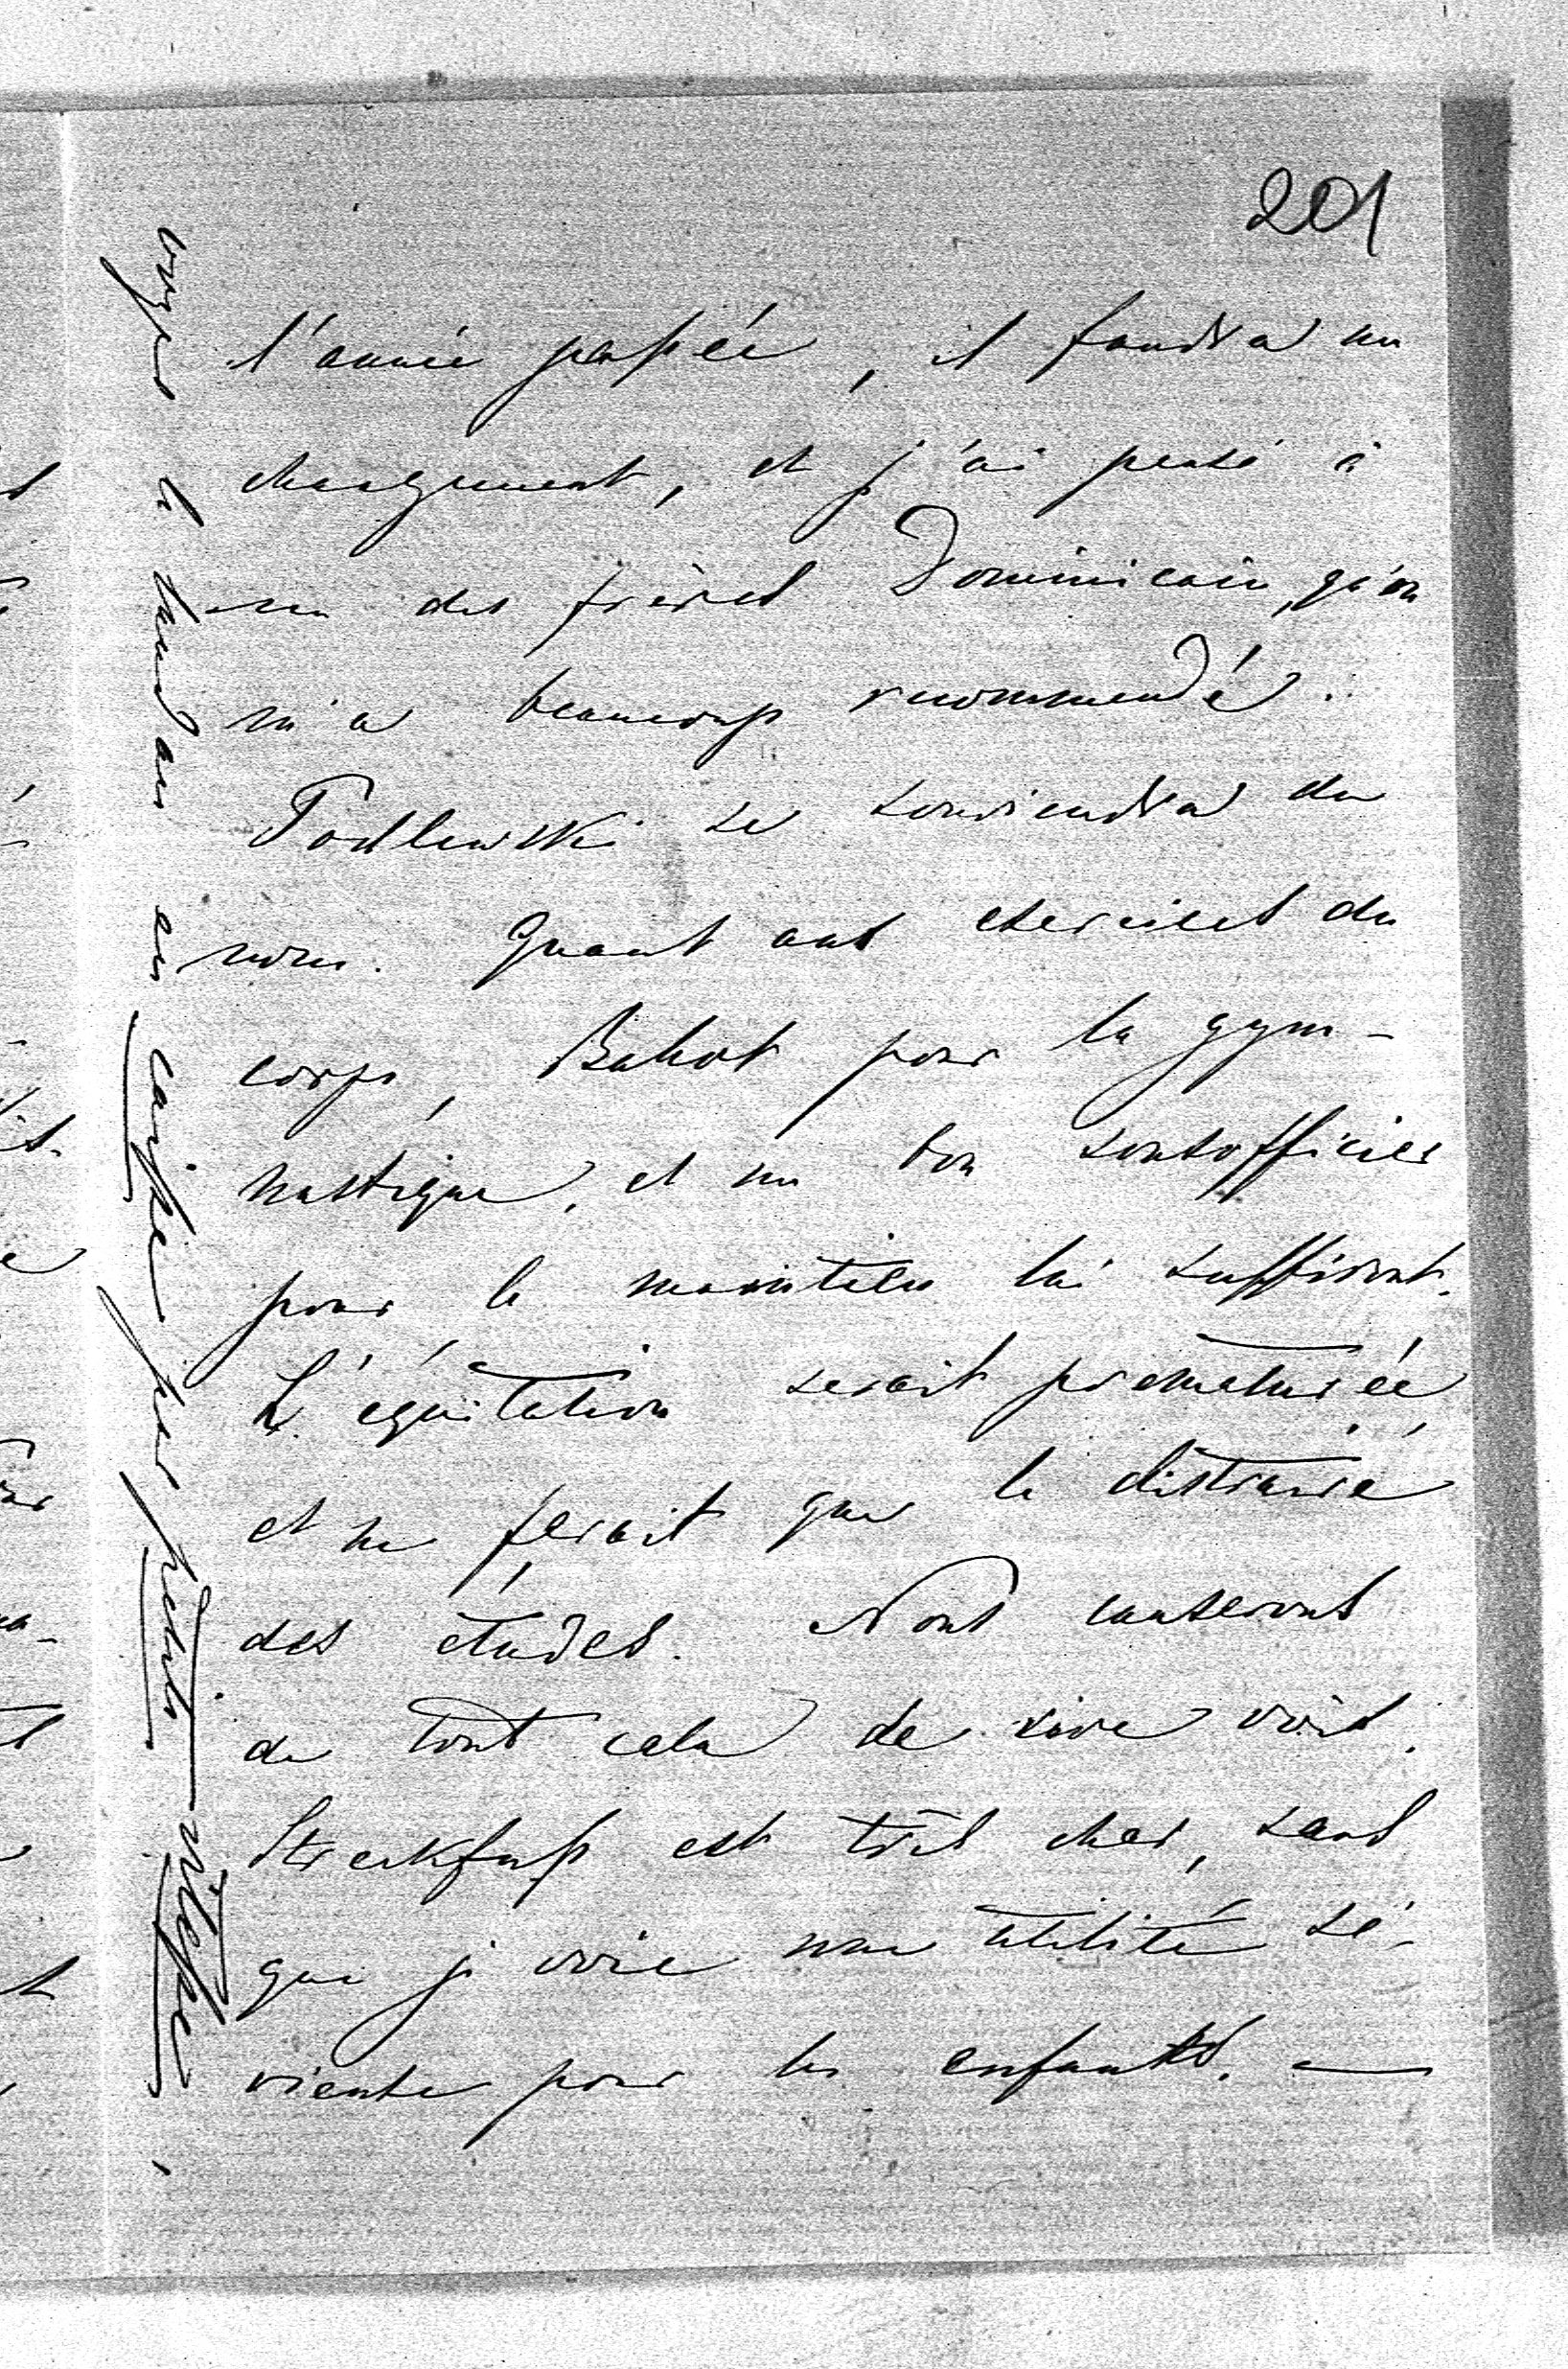 201
l'année passée, il faudra un
changement, et j'ai pensé à
un des frères Dominicain, qu'on
m'a beaucoup recommendé.
Podlewski se souviendra du
nom. Quant aux exercices du
corps, Bahot pour la gym-
nastique, et un bon sousofficier
pour le maintien lui suffiront.
L'équitation serait prématurée,
et ne ferait que le distraire
des études. Nous causerons
de tout cela de vive voix.
Streckfuss est très cher, sans
que j'y voie une utilité sé-
rieuse pour les enfants. —